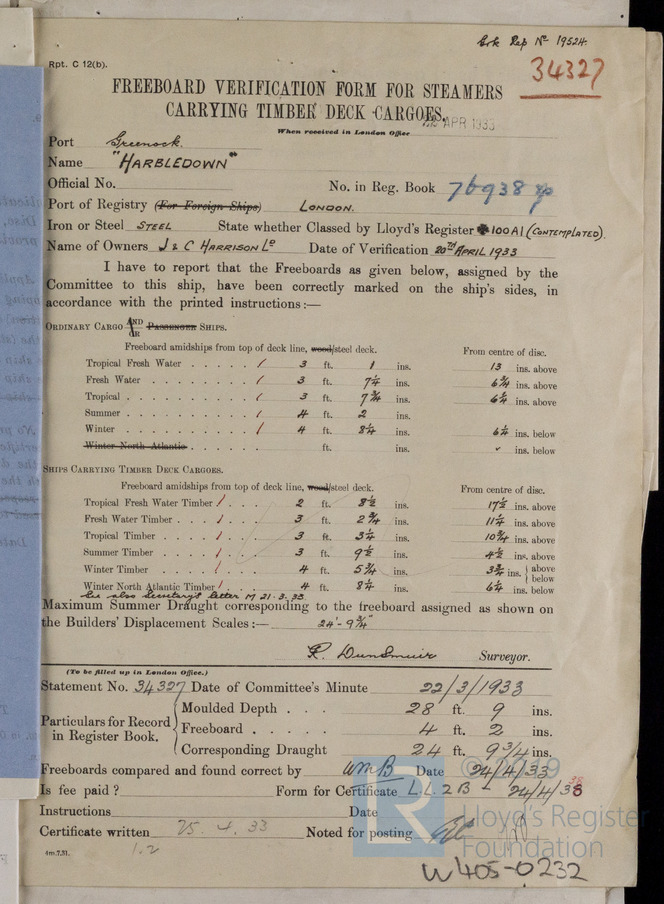 Grk Rep No 19524
34327
Rpt. C 12(b).
FREEBOARD VERIFICATION FORM FOR STEAMERS
CARRYING TIMBER DECK CARGOES.
APR 1933
When received in London Office
Port Greenock.
Name "HARBLEDOWN"
Official No. No. in Reg. Book 76938
Port of Registry (For Foreign Ships) LONDON.
Iron or Steel STEEL State whether Classed by Lloyd's Register 100A1 (CONTEMPLATED).
Name of Owners J & C HARRISON Ld Date of Verification 20th APRIL 1933
I have to report that the Freeboards as given below, assigned by the
Committee to this ship, have been correctly marked on the ship's sides, in
accordance with the printed instructions:—
ORDINARY CARGO AND OR PASSENGER SHIPS.
Freeboard amidships from top of deck line, wood/steel deck. From centre of disc.
Tropical Fresh Water 3 ft. 1 ins. 13 ins. above
Fresh Water 3 ft. 7 1/4 ins. 6 3/4 ins. above
Tropical 3 ft. 7 3/4 ins. 6 1/4 ins. above
Summer 4 ft. 2 ins.
Winter 4 ft. 8 1/4 ins. 6 1/4 ins. below
Winter North Atlantic ft. ins. ins. below
SHIPS CARRYING TIMBER DECK CARGOES.
Freeboard amidships from top of deck line, wood/steel deck. From centre of disc.
Tropical Fresh Water Timber 2 ft. 8 1/2 ins. 17 1/2 ins. above
Fresh Water Timber 3 ft. 2 3/4 ins. 11 1/4 ins. above
Tropical Timber 3 ft. 3 1/4 ins. 10 3/4 ins. above
Summer Timber 3 ft. 9 1/2 ins. 4 1/2 ins. above
Winter Timber 4 ft. 5 3/4 ins. 3 3/4 ins. above below
Winter North Atlantic Timber 4 ft. 8 1/4 ins. 6 1/4 ins. below
See also Secretary's letter M 21.3.33
Maximum Summer Draught corresponding to the freeboard assigned as shown on
the Builders' Displacement Scales:— 24'-9 3/4"
R. Dunsmuir Surveyor.
(To be filled up in London Office.)
Statement No. 34327 Date of Committee's Minute 22/3/1933
Particulars for Record in Register Book.
Moulded Depth 28 ft. 9 ins.
Freeboard 4 ft. 2 ins.
Corresponding Draught 24 ft. 9 3/4 ins.
Freeboards compared and found correct by WMB Date 24/4/33
Is fee paid ? Form for Certificate L.L. 2 B - 24/4/33
Instructions Date
Certificate written 25.4.33 Noted for posting
4m.7.31.
1.2
© 2019
LR
Lloyd's Register
Foundation
W405-0232